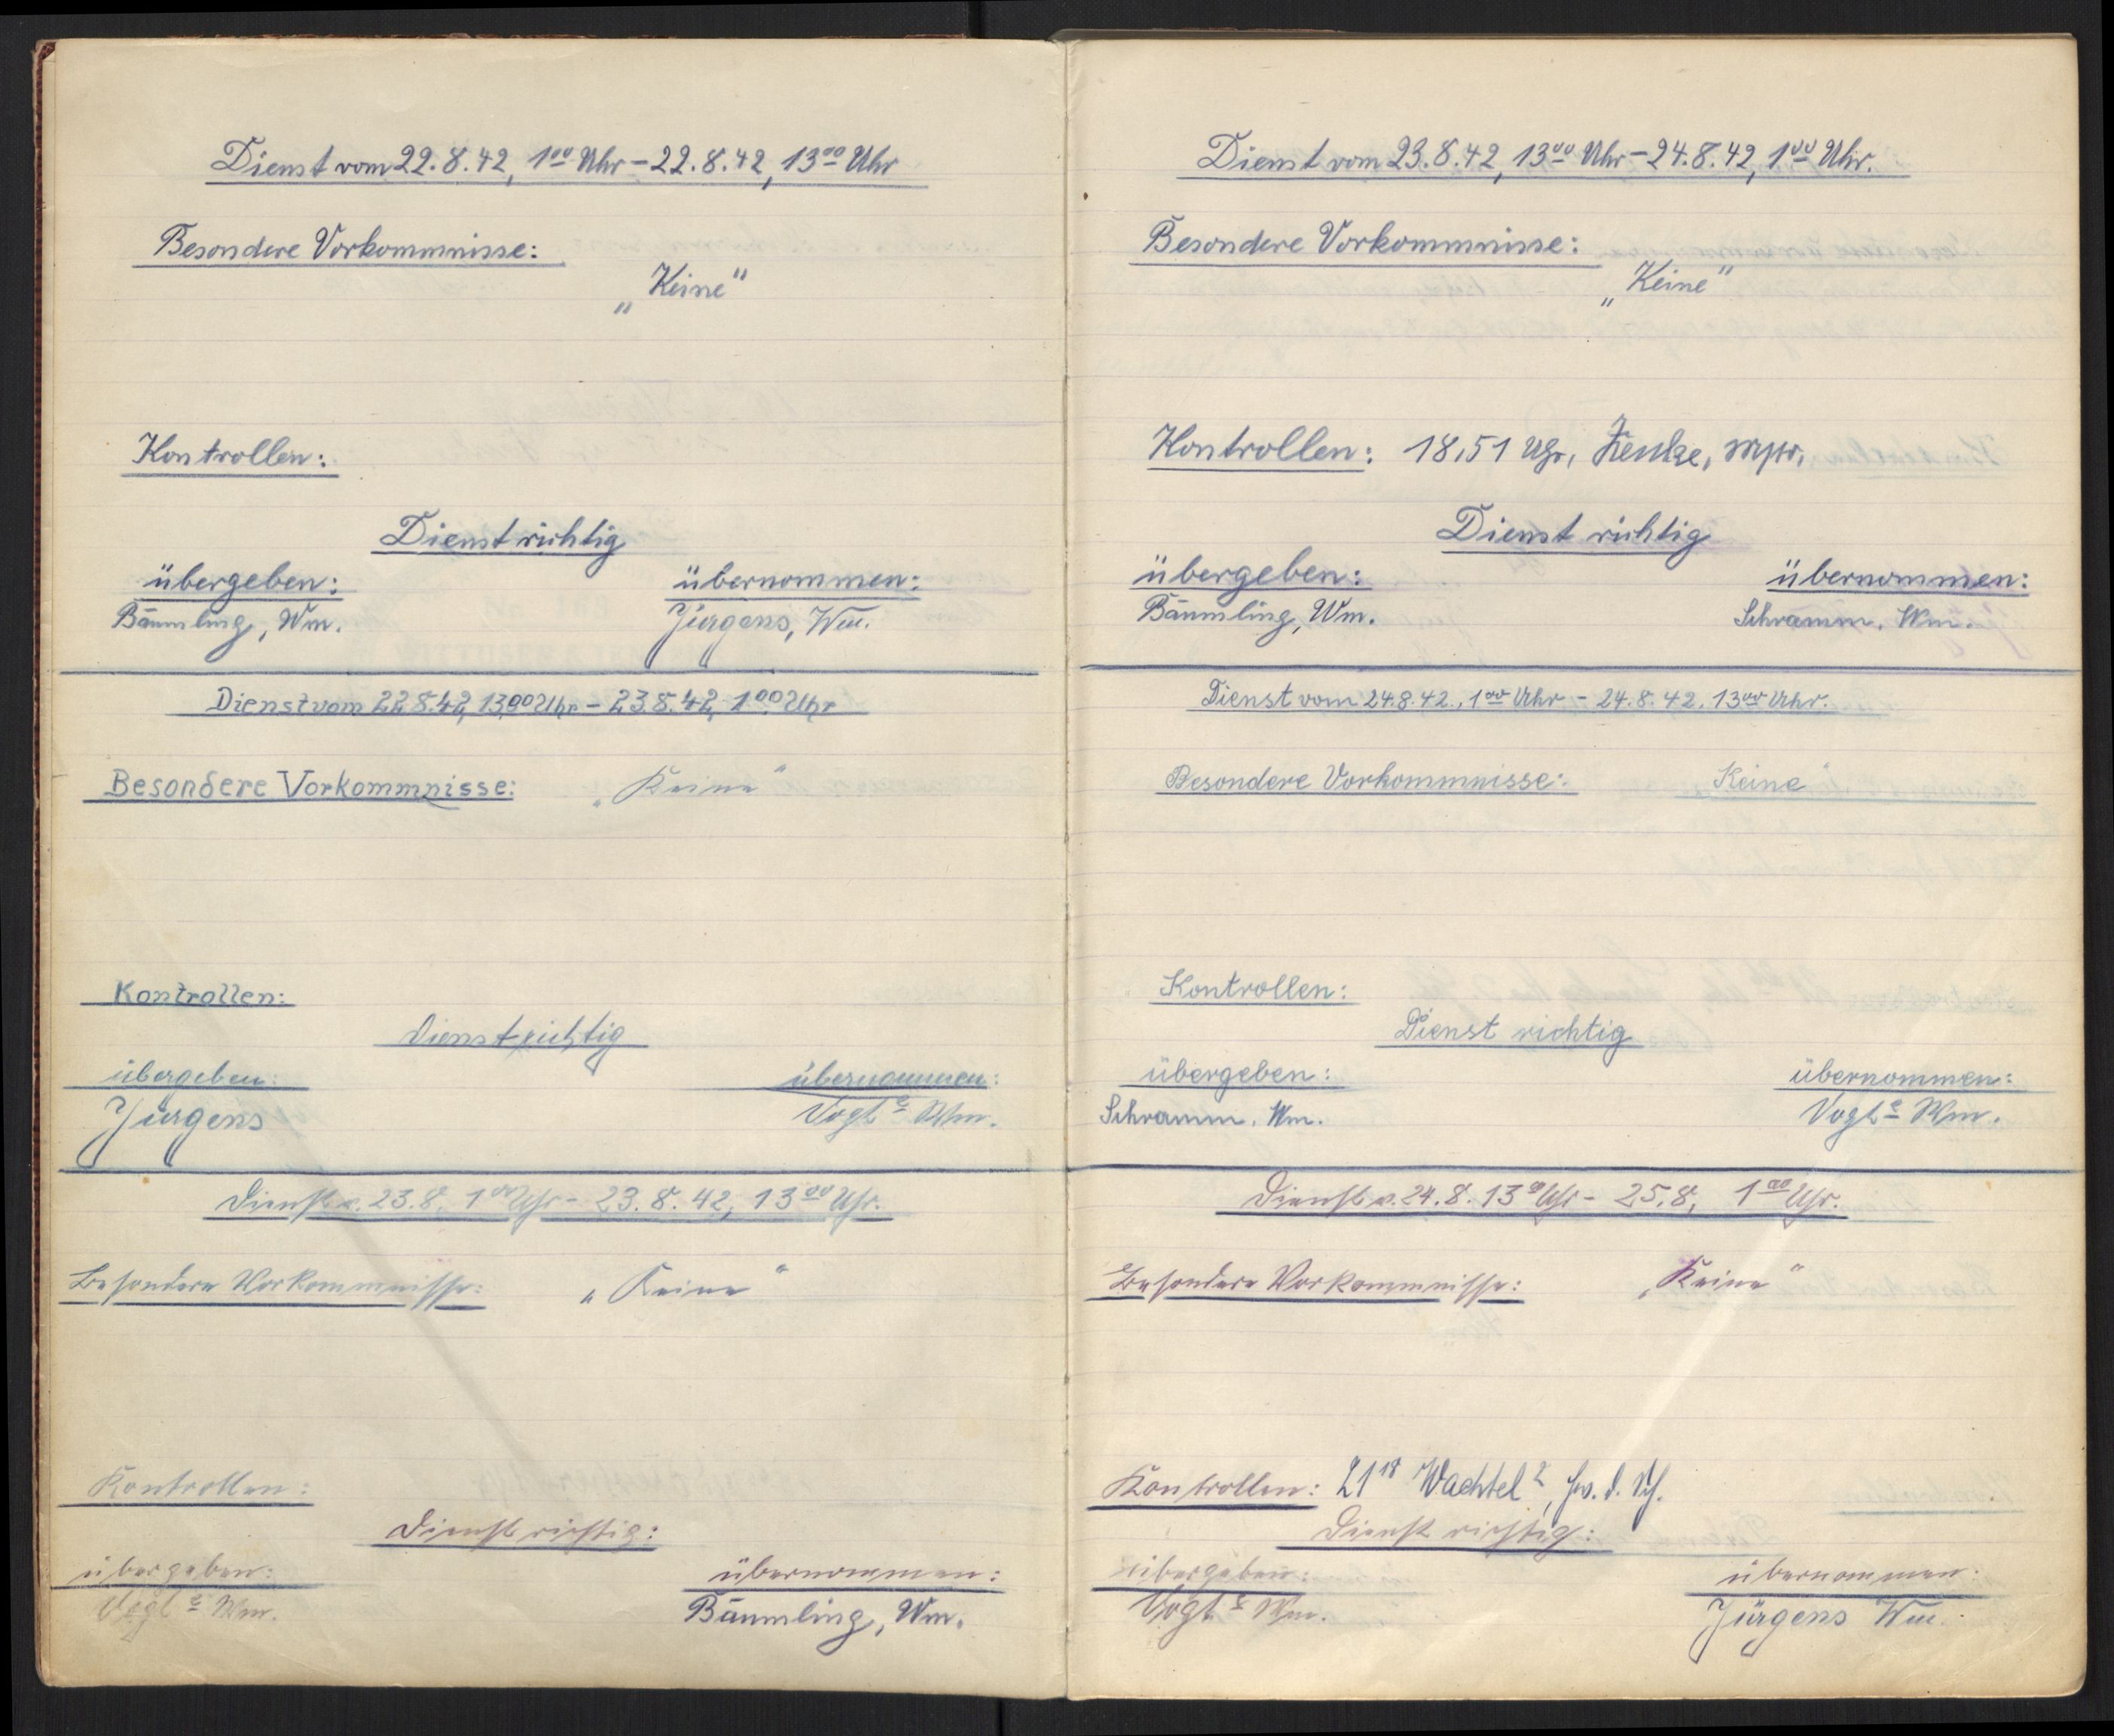 Dienst vom 22.8.42, 1⁰⁰ Uhr – 22.8.42, 13⁰⁰ Uhr
Besondere Vorkommnisse:
„Keine"
Kontrollen:
Dienst richtig
übergeben: übernommen:
Bäumling, Wm. Jürgens, Wm.
Dienst vom 22.8.42, 13⁰⁰ Uhr – 23.8.42, 1⁰⁰ Uhr
Besondere Vorkommnisse: „Keine"
Kontrollen:
Dienst richtig
übergeben: übernommen:
Jürgens Vogt Wm.
Dienst v. 23.8. 1⁰⁰ Uhr – 23.8.42, 13⁰⁰ Uhr.
Besondere Vorkommnisse: „Keine"
Kontrollen:
Dienst richtig:
übergeben: übernommen:
Vogt Wm. Bäumling, Wm.
Dienst vom 23.8.42, 13⁰⁰ Uhr – 24.8.42, 1⁰⁰ Uhr.
Besondere Vorkommnisse:
„Keine"
Kontrollen: 18,51 Uhr,
Dienst richtig
übergeben: übernommen:
Bäumling, Wm. Schramm, Wm.
Dienst vom 24.8.42., 1⁰⁰ Uhr – 24.8.42. 13⁰⁰ Uhr.
Besondere Vorkommnisse: „Keine"
Kontrollen:
Dienst richtig
übergeben: übernommen:
Schramm, Wm. Vogt Wm.
Dienst v. 24.8. 13⁰⁰ Uhr – 25.8. 1⁰⁰ Uhr.
Besondere Vorkommnisse: „Keine"
Kontrollen: 21¹⁸ Wachtel
Dienst richtig:
übergeben: übernommen:
Vogt Wm. Jürgens Wm.